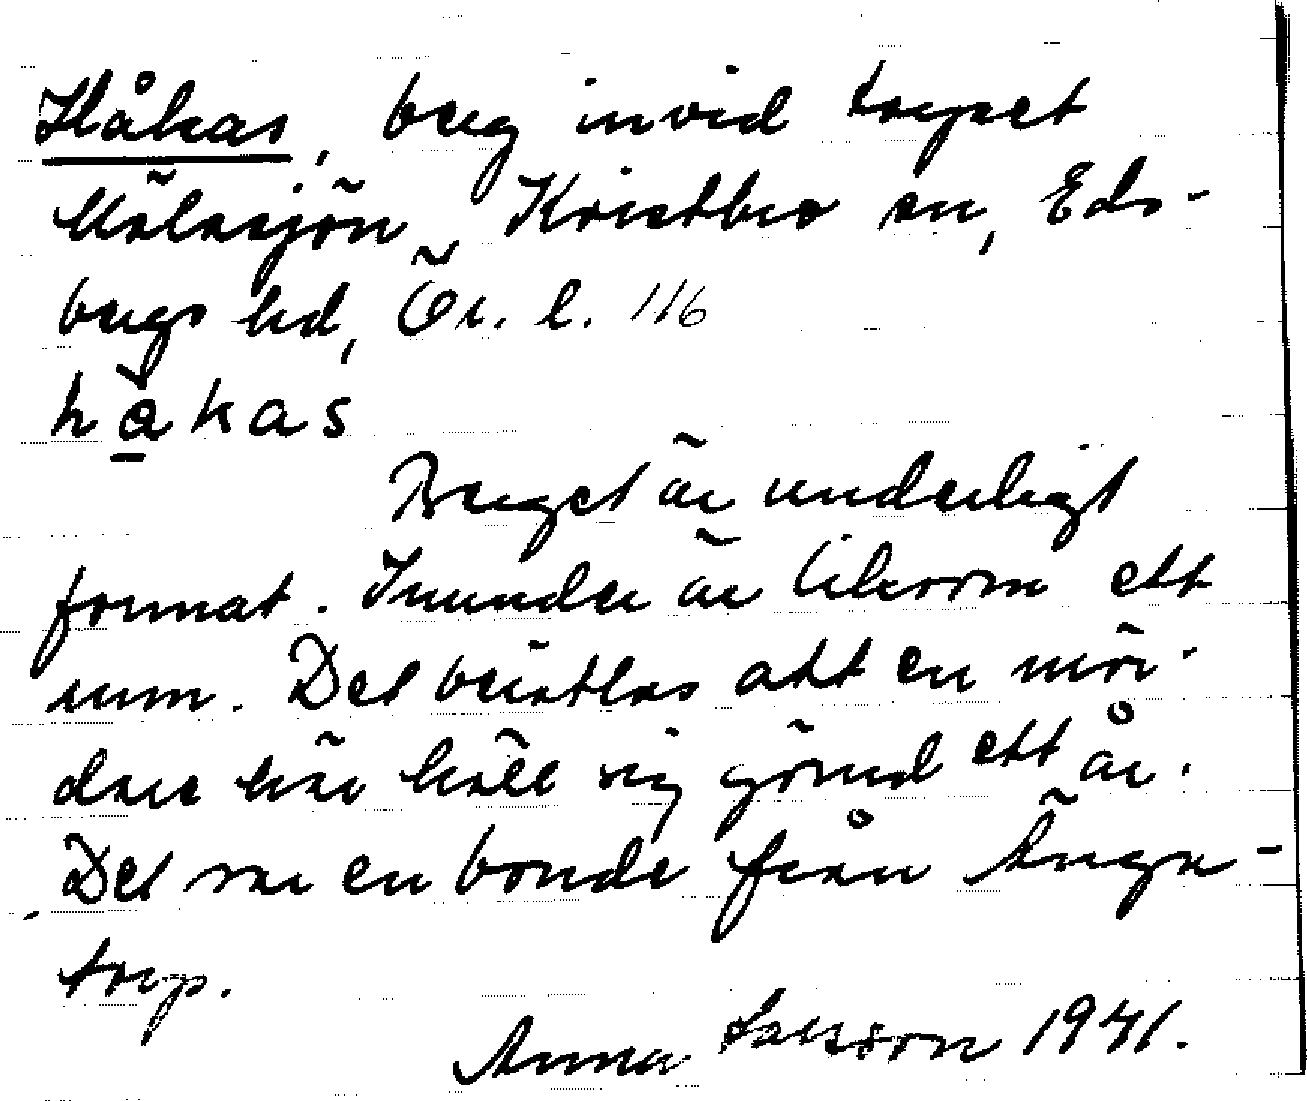 Håkas, berg invid torpet
Mälasjön, Kristberg sn, Eds-
bergs hd, Ör. l. 116
håkas
Berget är underligt
format. Inunder är liksom ett
rum. Det berättas att en mör-
dare här höll sig gömd ett år.
Det var en bonde från Änga-
torp.
Anna Larsson 1941.